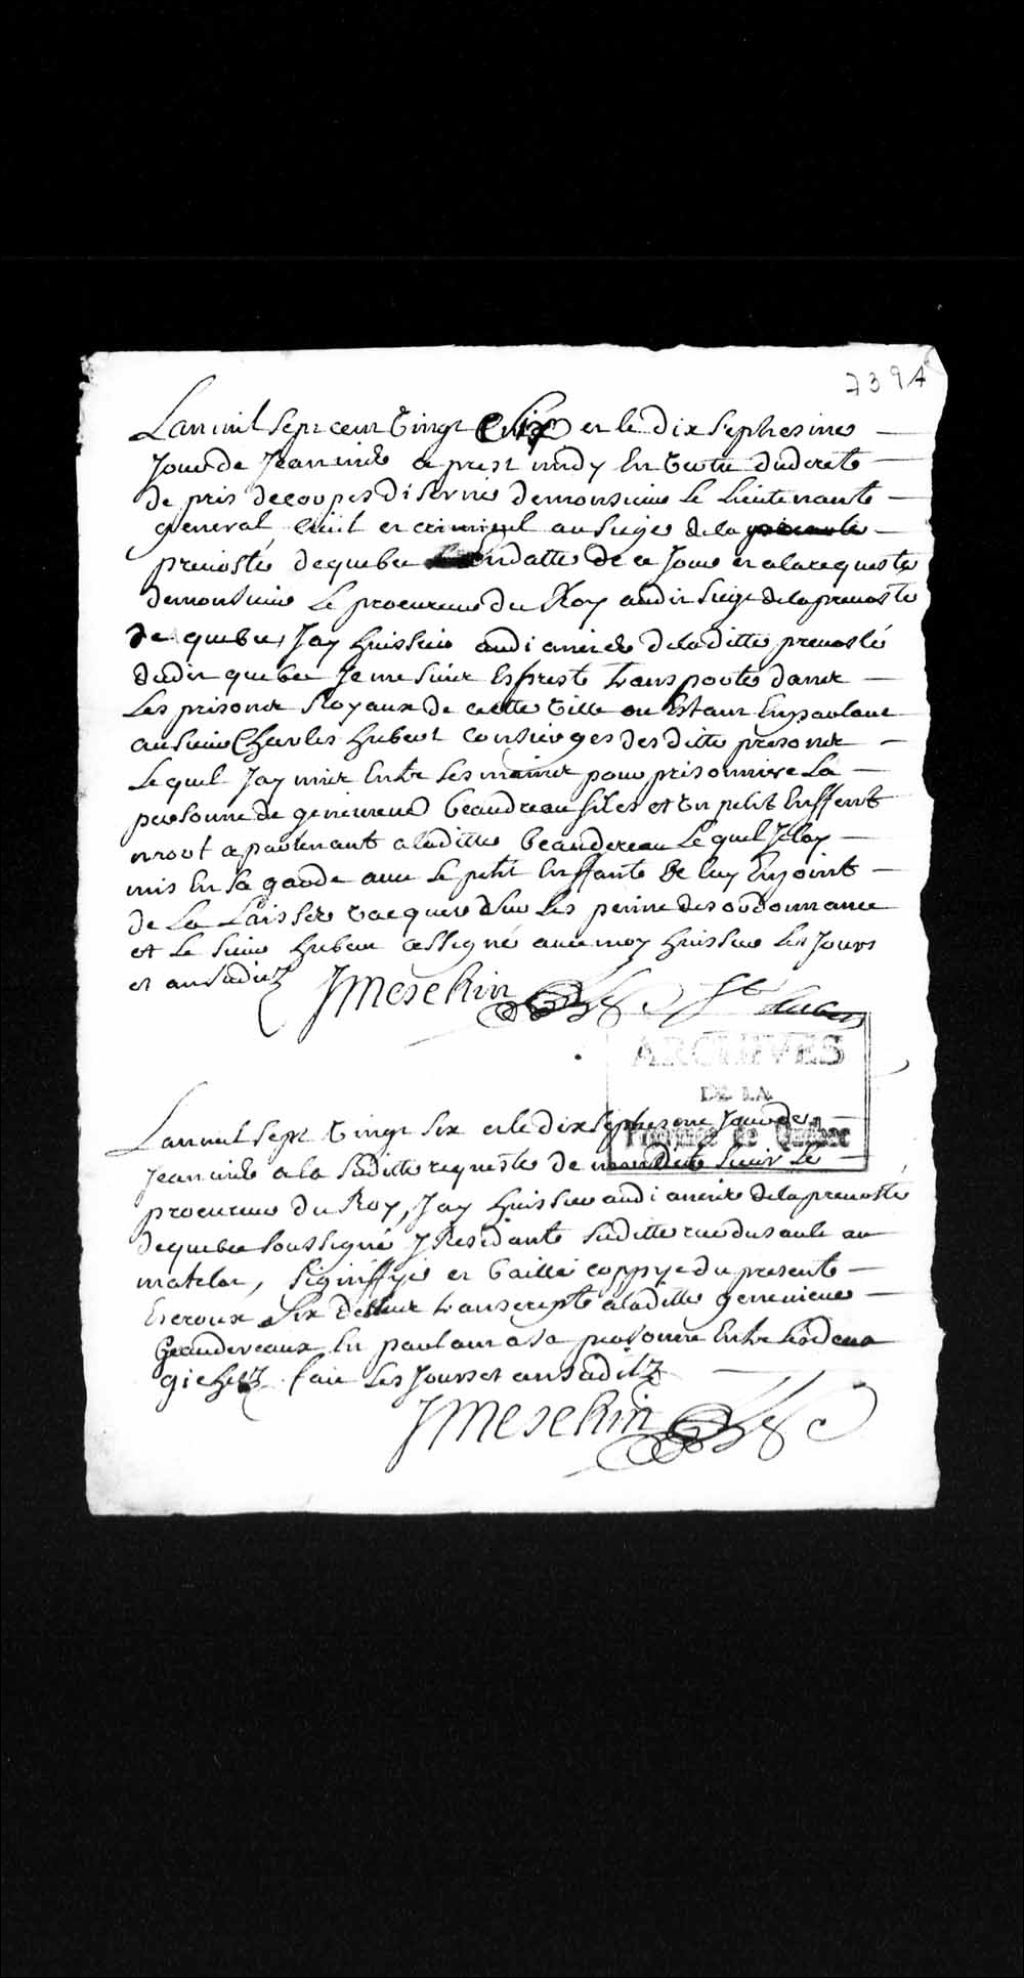 739A
Lan mil sept cent vingt six et le dix septiesme
Jour de Jeanvier apres midy En vertu du decrets
de pris de corps disernée de monsieur le Lieutenante
general civil et criminel au siege de la
prevostée de quebec en datte de ce Jour et a la requeste
de monsieur Le procureur du Roy audit siege de la prevoste
de quebec Jay huissier audiancier de laditte prevosté
dudit quebec Je me suis Esprest transportée dans
Les prisons Royaux de cette ville ou Estant En parlant
au sieur Charles hubert consierges desditte prisons
Lequel Jay mis Entre ses mains pour prisonniere La
personne de genevieve beaudreau files et un petit Enffent
mort apartenant a laditte beaudereau Lequel Je lay
mis En sa garde avec Le petit Enffante De luy Enjoint
de La Laisser vacquer Sur les peinne des ordonnance
et Le sieur hubert a ssigné avec moy huissier Les Jours
et an suditz
JMeschin
hubert
ARCHIVES
DE LA
Province de Québec
Lan mil sept vingt six et le dix septiesme Jour de
Jeanvier a la suditte requeste de mondit sieur Le
procureur du Roy, Jay huissier audiancier de la prevosté
de quebec soussigné y Residante suditte rue du saule au
matelot, signiffyé et baillé coppye du presente
Ecroux Six dessus transcripte a laditte genevieve
beaudereaux En parlant a sa personne Entre les deux
gichetz fait Les Jours et an saditz
JMeschin